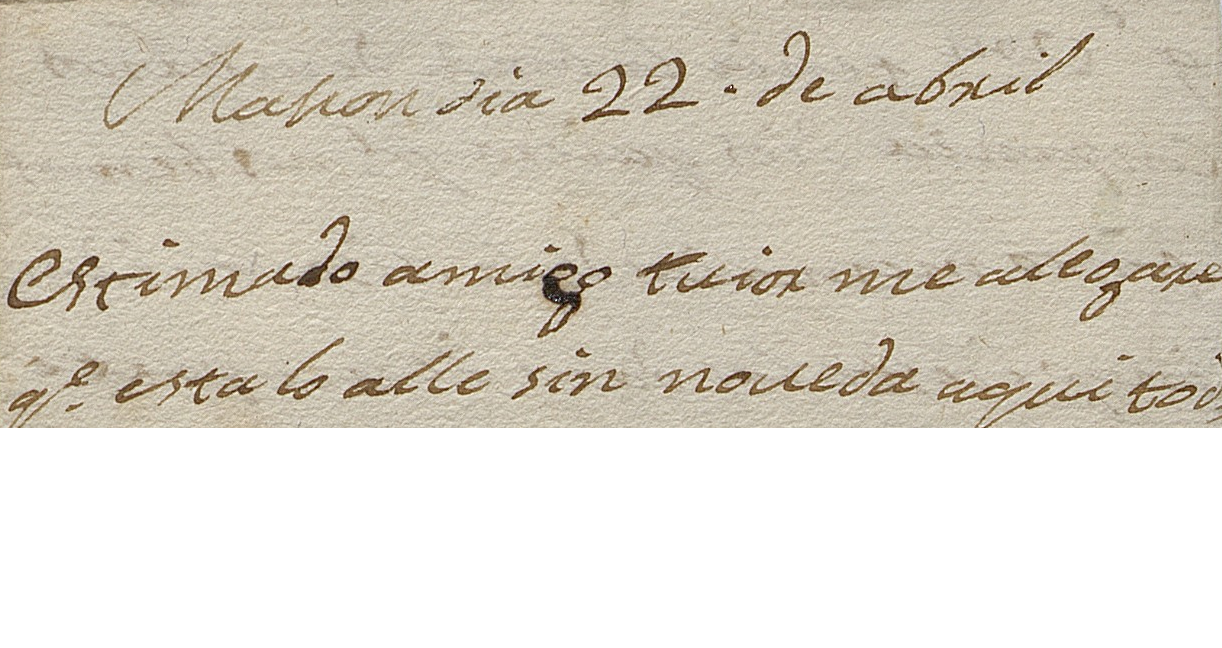 Mahon dia 22. de abril
Estimado amigo tuior me allegare
qe. esta lo alle sin noueda aqui tod